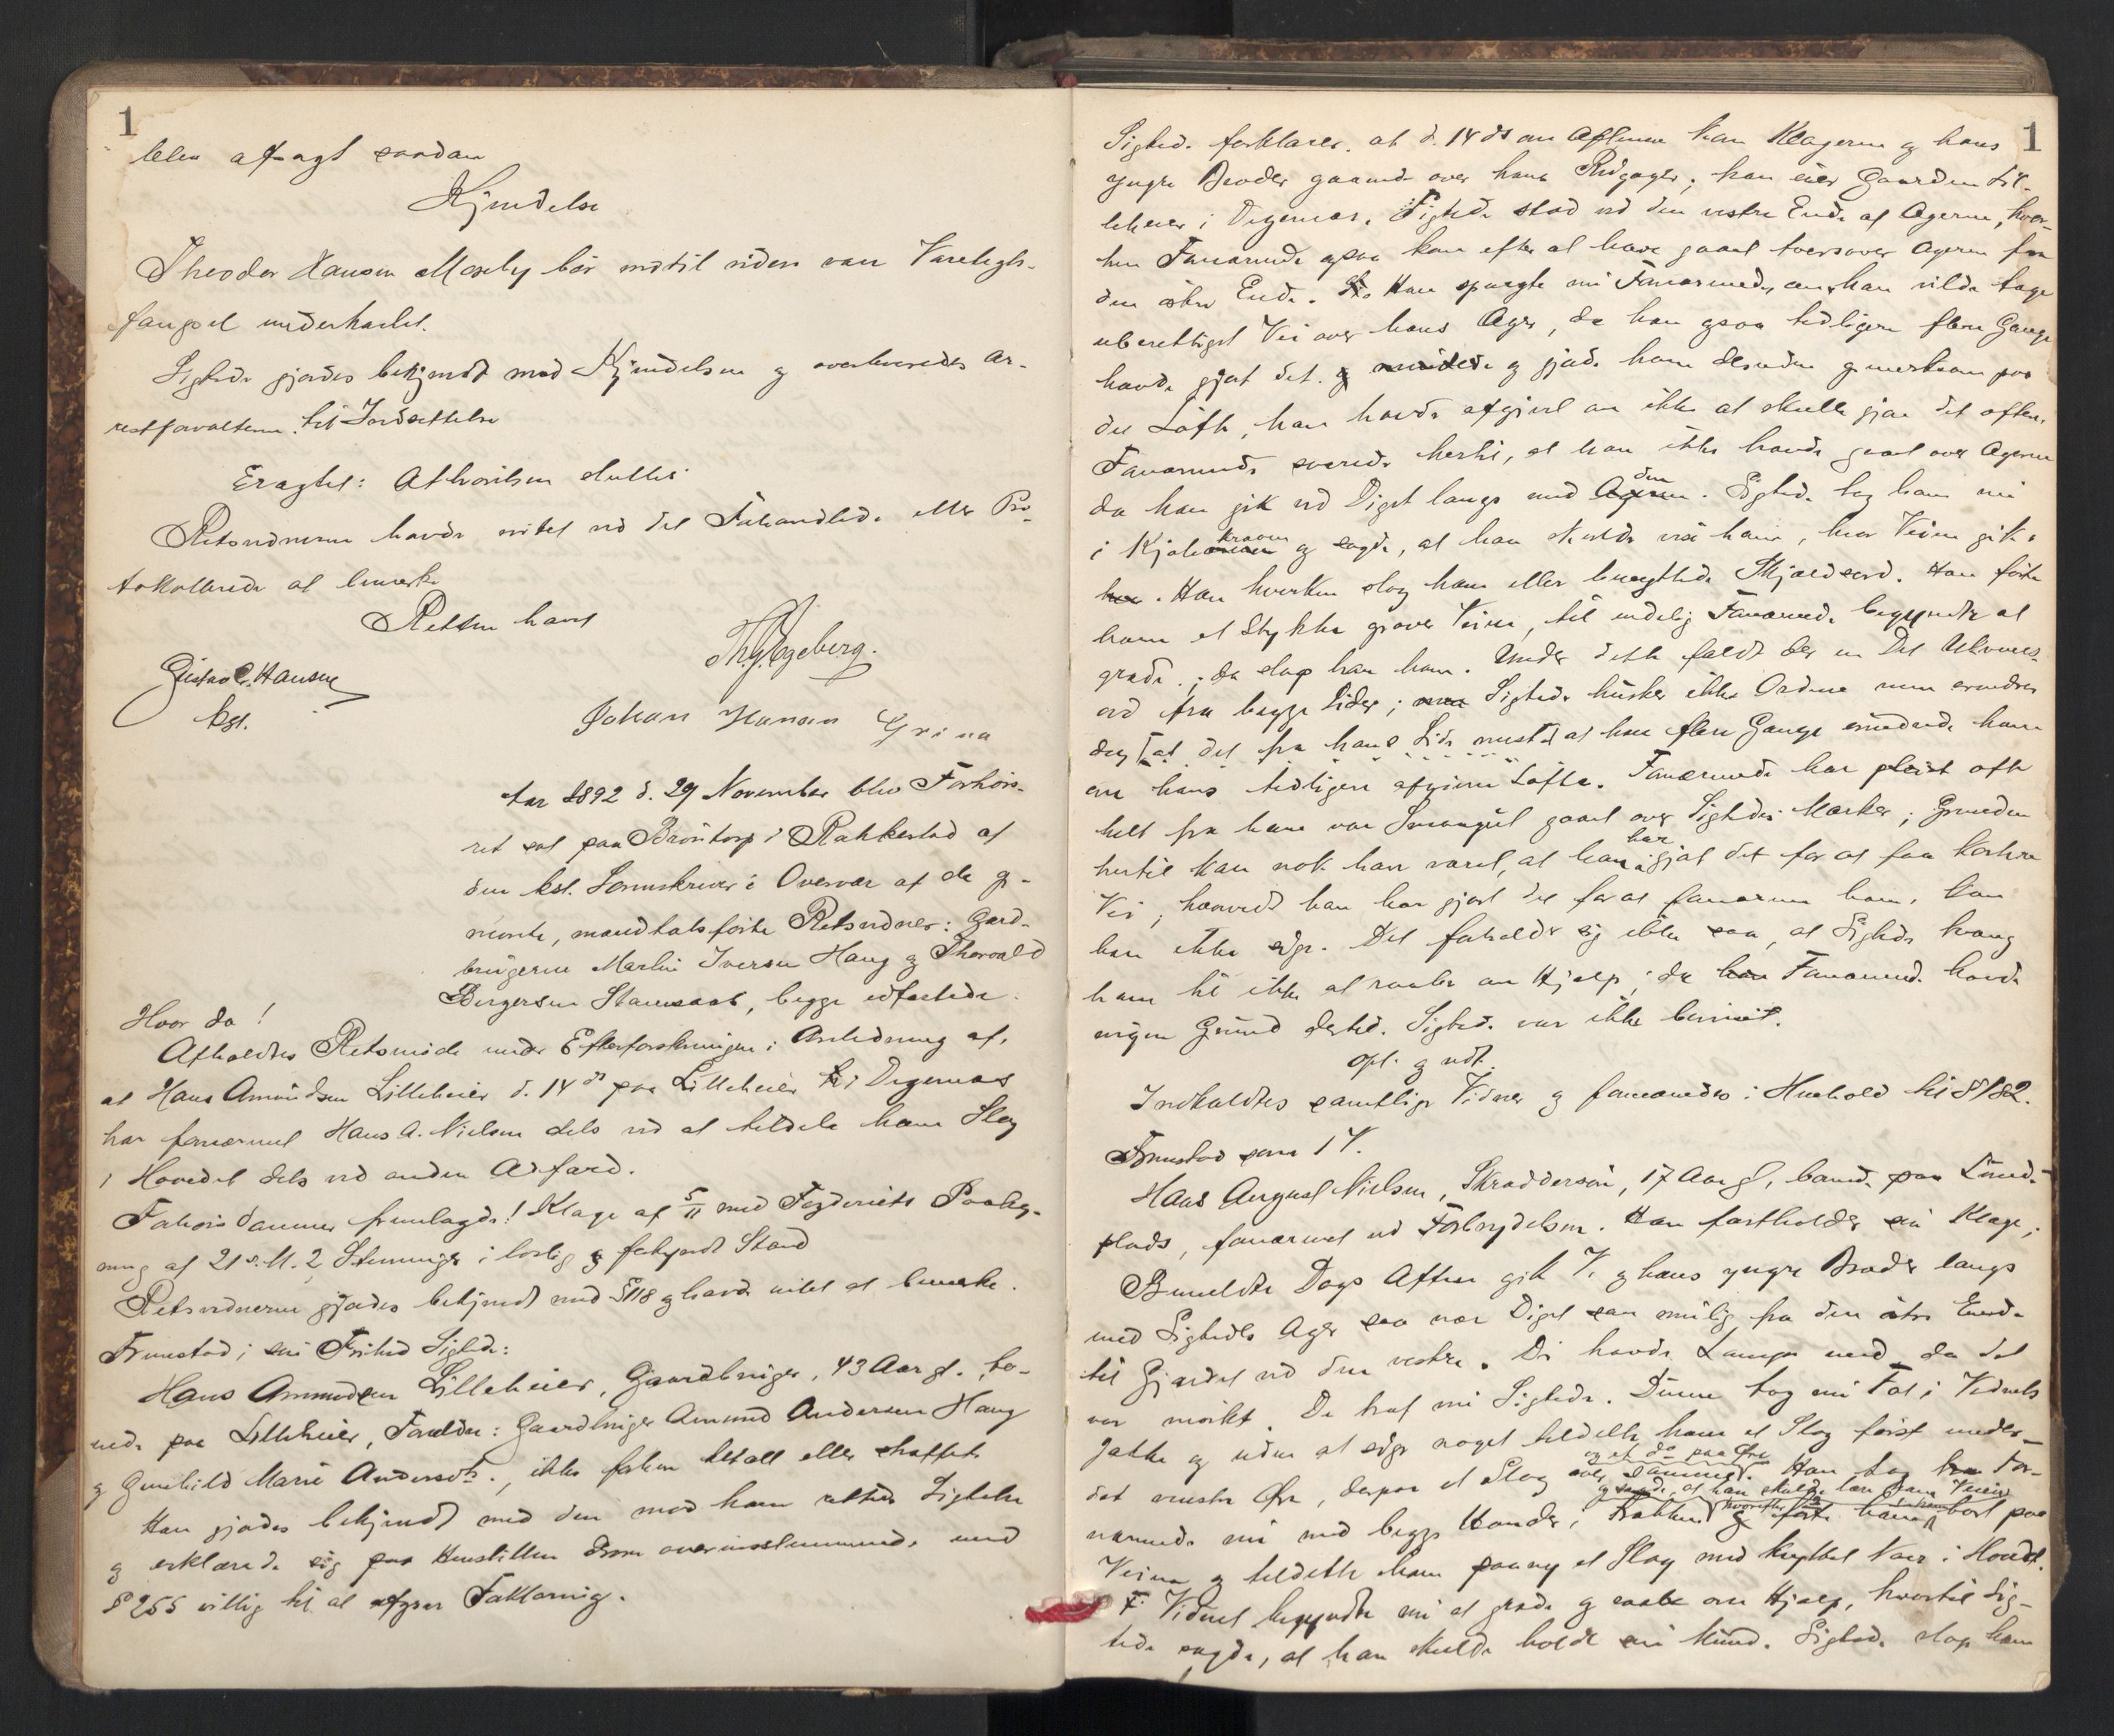 1
blev afsagt saadan
Kjendelse
Theodor Hansen Moseby bør indtil videre være Varetægts-
fængsel underkastet.
Sigtede gjordes bekjendt med Kjendelsen og overleveredes Ar-
restforvalteren til Indsættelse
Eragtet: Afhørelsen sluttes
Retsvidnerne havde intet ved det Forhandlede eller Pro-
tokollerede at bemærke
Retten hævet
Th. J. Egeberg.
Gustav C. Hansen
kst.
Johan Hansen Grina
Aar 1892 d. 29 November blev Forhørs-
ret sat paa Brøntorp i Rakkestad af
den kst. Sorenskriver i Overvær af de op-
nævnte, mandtalsførte Retsvidner: Gaard-
brugerne Martin Iversen Haug og Thorvald
Birgersen Stamsaas, begge edfæstede.
Hvor da!
Afholdtes Retsmøde under Efterforskningen i Anledning af,
at Hans Amundsen Lilleheier d. 14 ds paa Lilleheier i Degernæs
har fornærmet Hans A. Nielsen dels ved at tildele ham Slag
i Hovedet dels ved anden Adfærd.
Forhørsdommeren fremlagde: Klage af 5/11 med Fogderiets Paateg-
ning af 21 s. M. 2, Stevninger i lovlig forkyndt Stand
Retsvidnerne gjordes bekjendt med § 118 og havde intet at bemærke.
Fremstod i sin Frihed Sigtede:
Hans Amundsen Lilleheier, Gaardbruger, 43 Aar gl., bo-
ende paa Lilleheier, Forældre: Gaardbruger Amund Andersen Haug
og Gunhild Marie Andersdt., ikke forhen tiltalt eller straffet.
Han gjordes bekjendt med den mod ham rettede Sigtelse
og erklærede sig paa Henstillen i overensstemmende med
§ 255 villig til at afgive Forklaring.
1
Sigtede forklarer, at d. 14 ds om Aftenen kom Klageren og hans
yngre Broder gaaende over hans Rugager; han eier Gaarden Lil-
leheier i Degernæs. Sigtede stod ved den vestre Ende af Ageren, hvor-
hen Fornærmede ogsaa kom efter at have gaaet tversover Ageren fra
den østre Ende. Han spurgte nu Fornærmede, om han vilde tage
uberettiget Vei over hans Ager, da han ogsaa tidligere flere Gange
havde gjort det og gjorde ham desuden opmerksom paa
det Løfte, han havde afgivet om ikke at skulle gjøre det oftere.
Fornærmede svarede hertil, at han ikke havde gaaet over Ageren
da han gik ved Diget langs med den. Sigtede tog ham nu
i Kjolekraven og sagde, at han skulde vise ham, hvor Veien gik.
Han hverken slog ham eller benyttede Skjældsord. Han førte
ham et Stykke Veien, til endelig Fornærmede begyndte at
græde; da slap han ham. Under dette faldt der en Del Ukvems-
ord fra begge Sider; Sigtede husker ikke Ordene men erindrer
dog at det fra hans Side at han flere Gange erindrede ham
om hans tidligere afgivne Løfte. Fornærmede har pleiet ofte
helt fra han var Smaagut gaaet over Sigtedes Marker; Grunden
hertil kan nok have været, at han har gjort det for at faa kortere
Vei; hvorvidt han har gjort det for at fornærme ham, kan
han ikke sige. Det forholder sig ikke saa, at Sigtede tvang
ham til ikke at raabe om Hjælp; da Fornærmede havde
ingen Grund dertil. Sigtede var ikke beruset.
Opl. og vdt.
Indkaldtes samtlige Vidner og formanedes i Henhold til § 182.
Fremstod som 1 V.
Hans August Nielsen, Skræddersøn, 17 Aar gl., boende paa Lunds-
plads, fornærmet ved Forbrydelsen. Han fastholder sin Klage;
Bemeldte Dags Aften gik V. og hans yngre Broder langs
med Sigtedes Ager saa nær Diget som mulig fra den østre Ende
til Gjærdet ved den vestre. De havde Lampe med, da det
var mørkt. De traf nu Sigtede. Denne tog nu Fat i Vidnets
Jakke og uden at sige noget tildelte ham et Slag først under
det venstre Øre, derpaa et Slag og et do paa Øre. Han tog For-
nærmede nu med begge Hænder i Frakken og sagde, at han skulde lære ham Veien hvorefter førte ham bort paa
Veien og tildelte ham paany et Slag med knyttet Næve i Hovedet.
Vidnet begyndte nu at græde og raabe om Hjælp, hvortil Sig-
tede sagde, at han skulde holde sin Mund. Sigtede slap ham